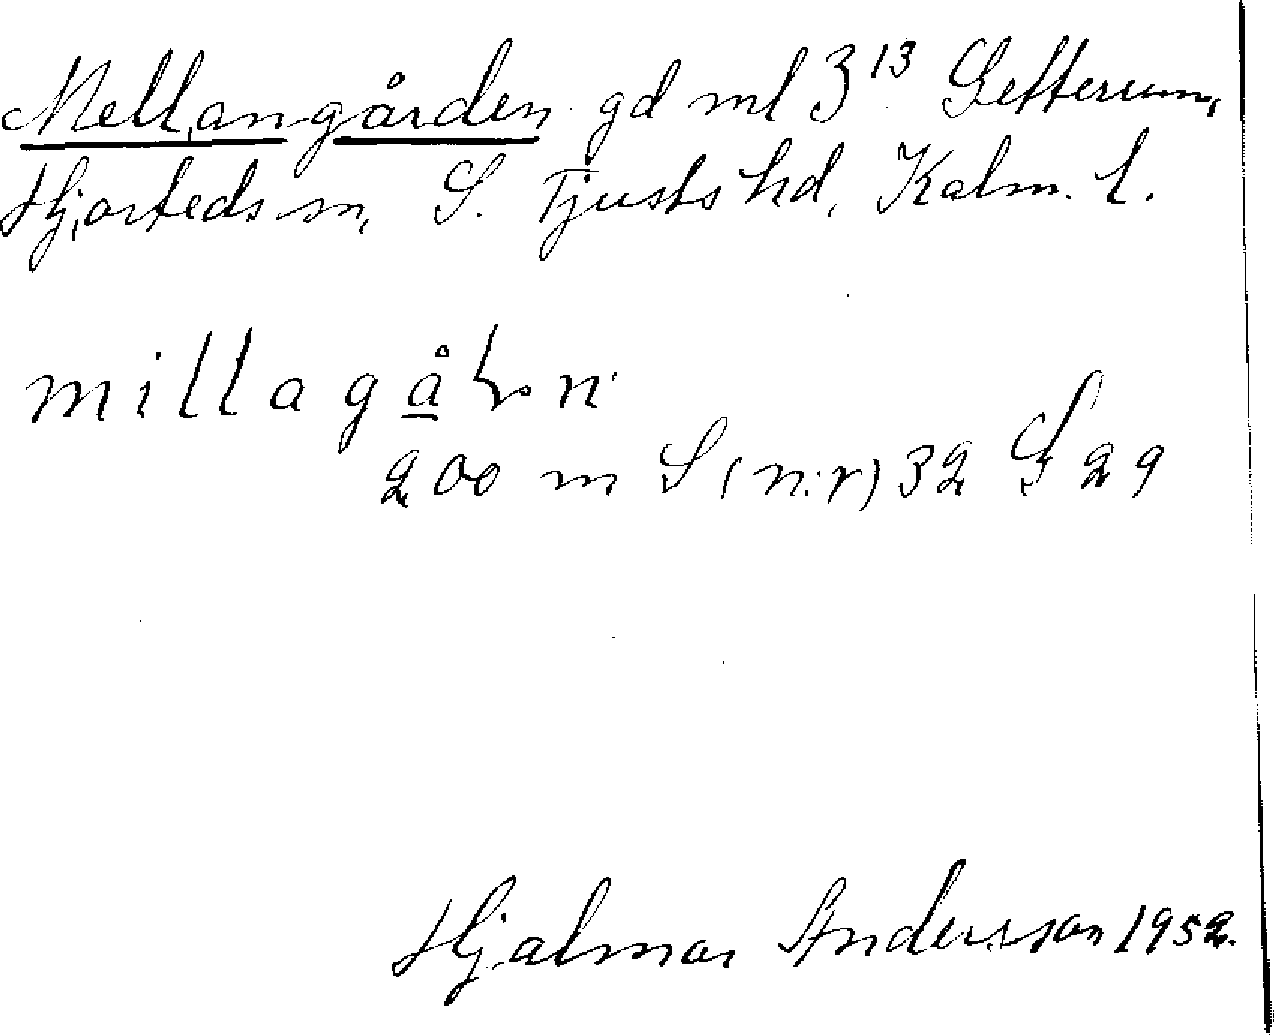 Mellangården gd ml 3¹³ Lefterum,
Hjorteds sn, S. Tjusts hd, Kalm. l.
millagån
200 m S (n:r) 32 S 29
Hjalmar Andersson 1952.